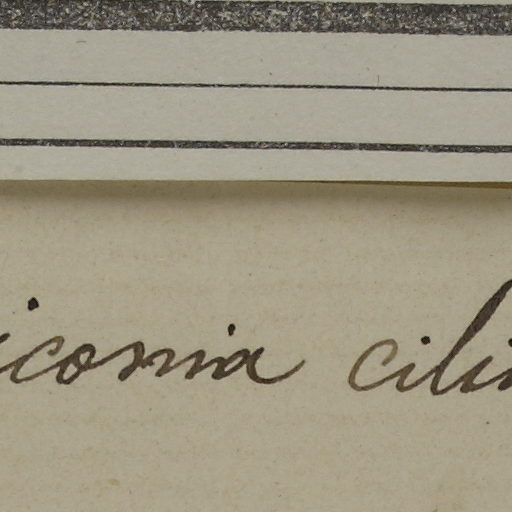 iconia cili